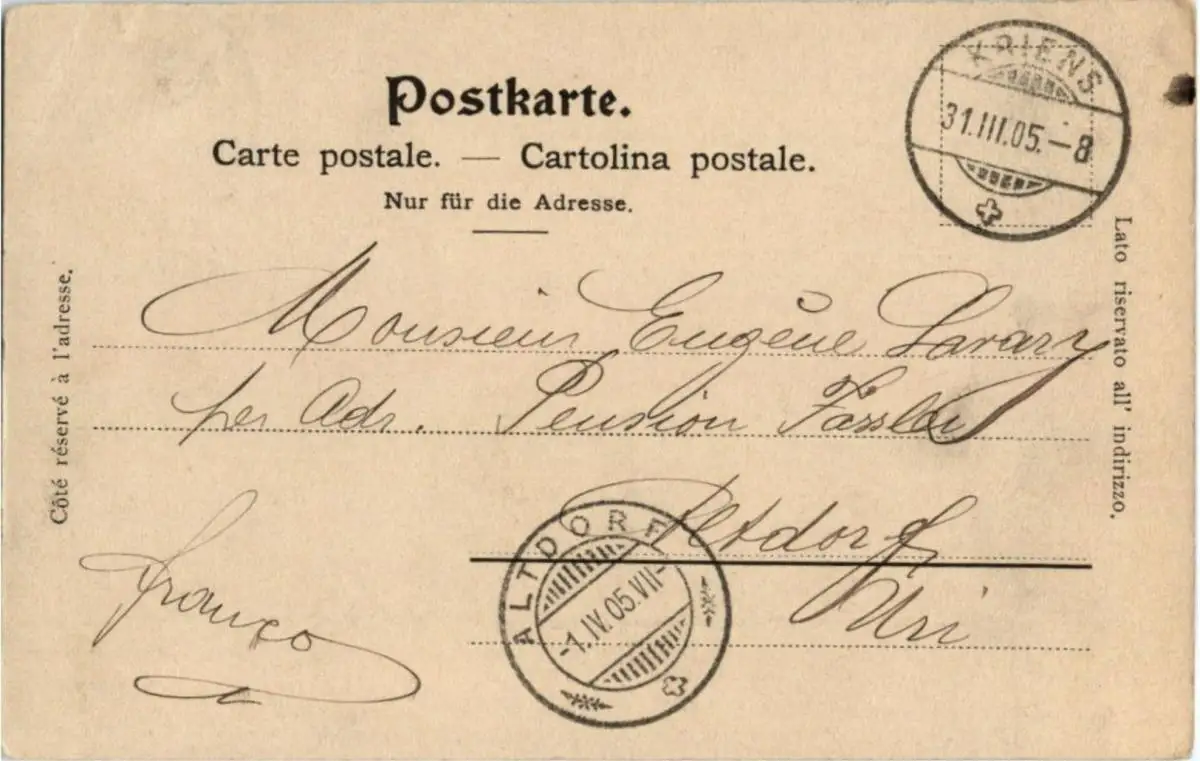 Postkarte.
Carte postale. — Cartolina postale.
Nur für die Adresse.
KRIENS
31.III.05.—8
Côté réservé à l'adresse.
Lato riservato all' indirizzo.
Monsieur Eugène Savary
per Adr. Pension Fässler
Altdorf
Uri
franco
ALTDORF
-1.IV.05.VII-